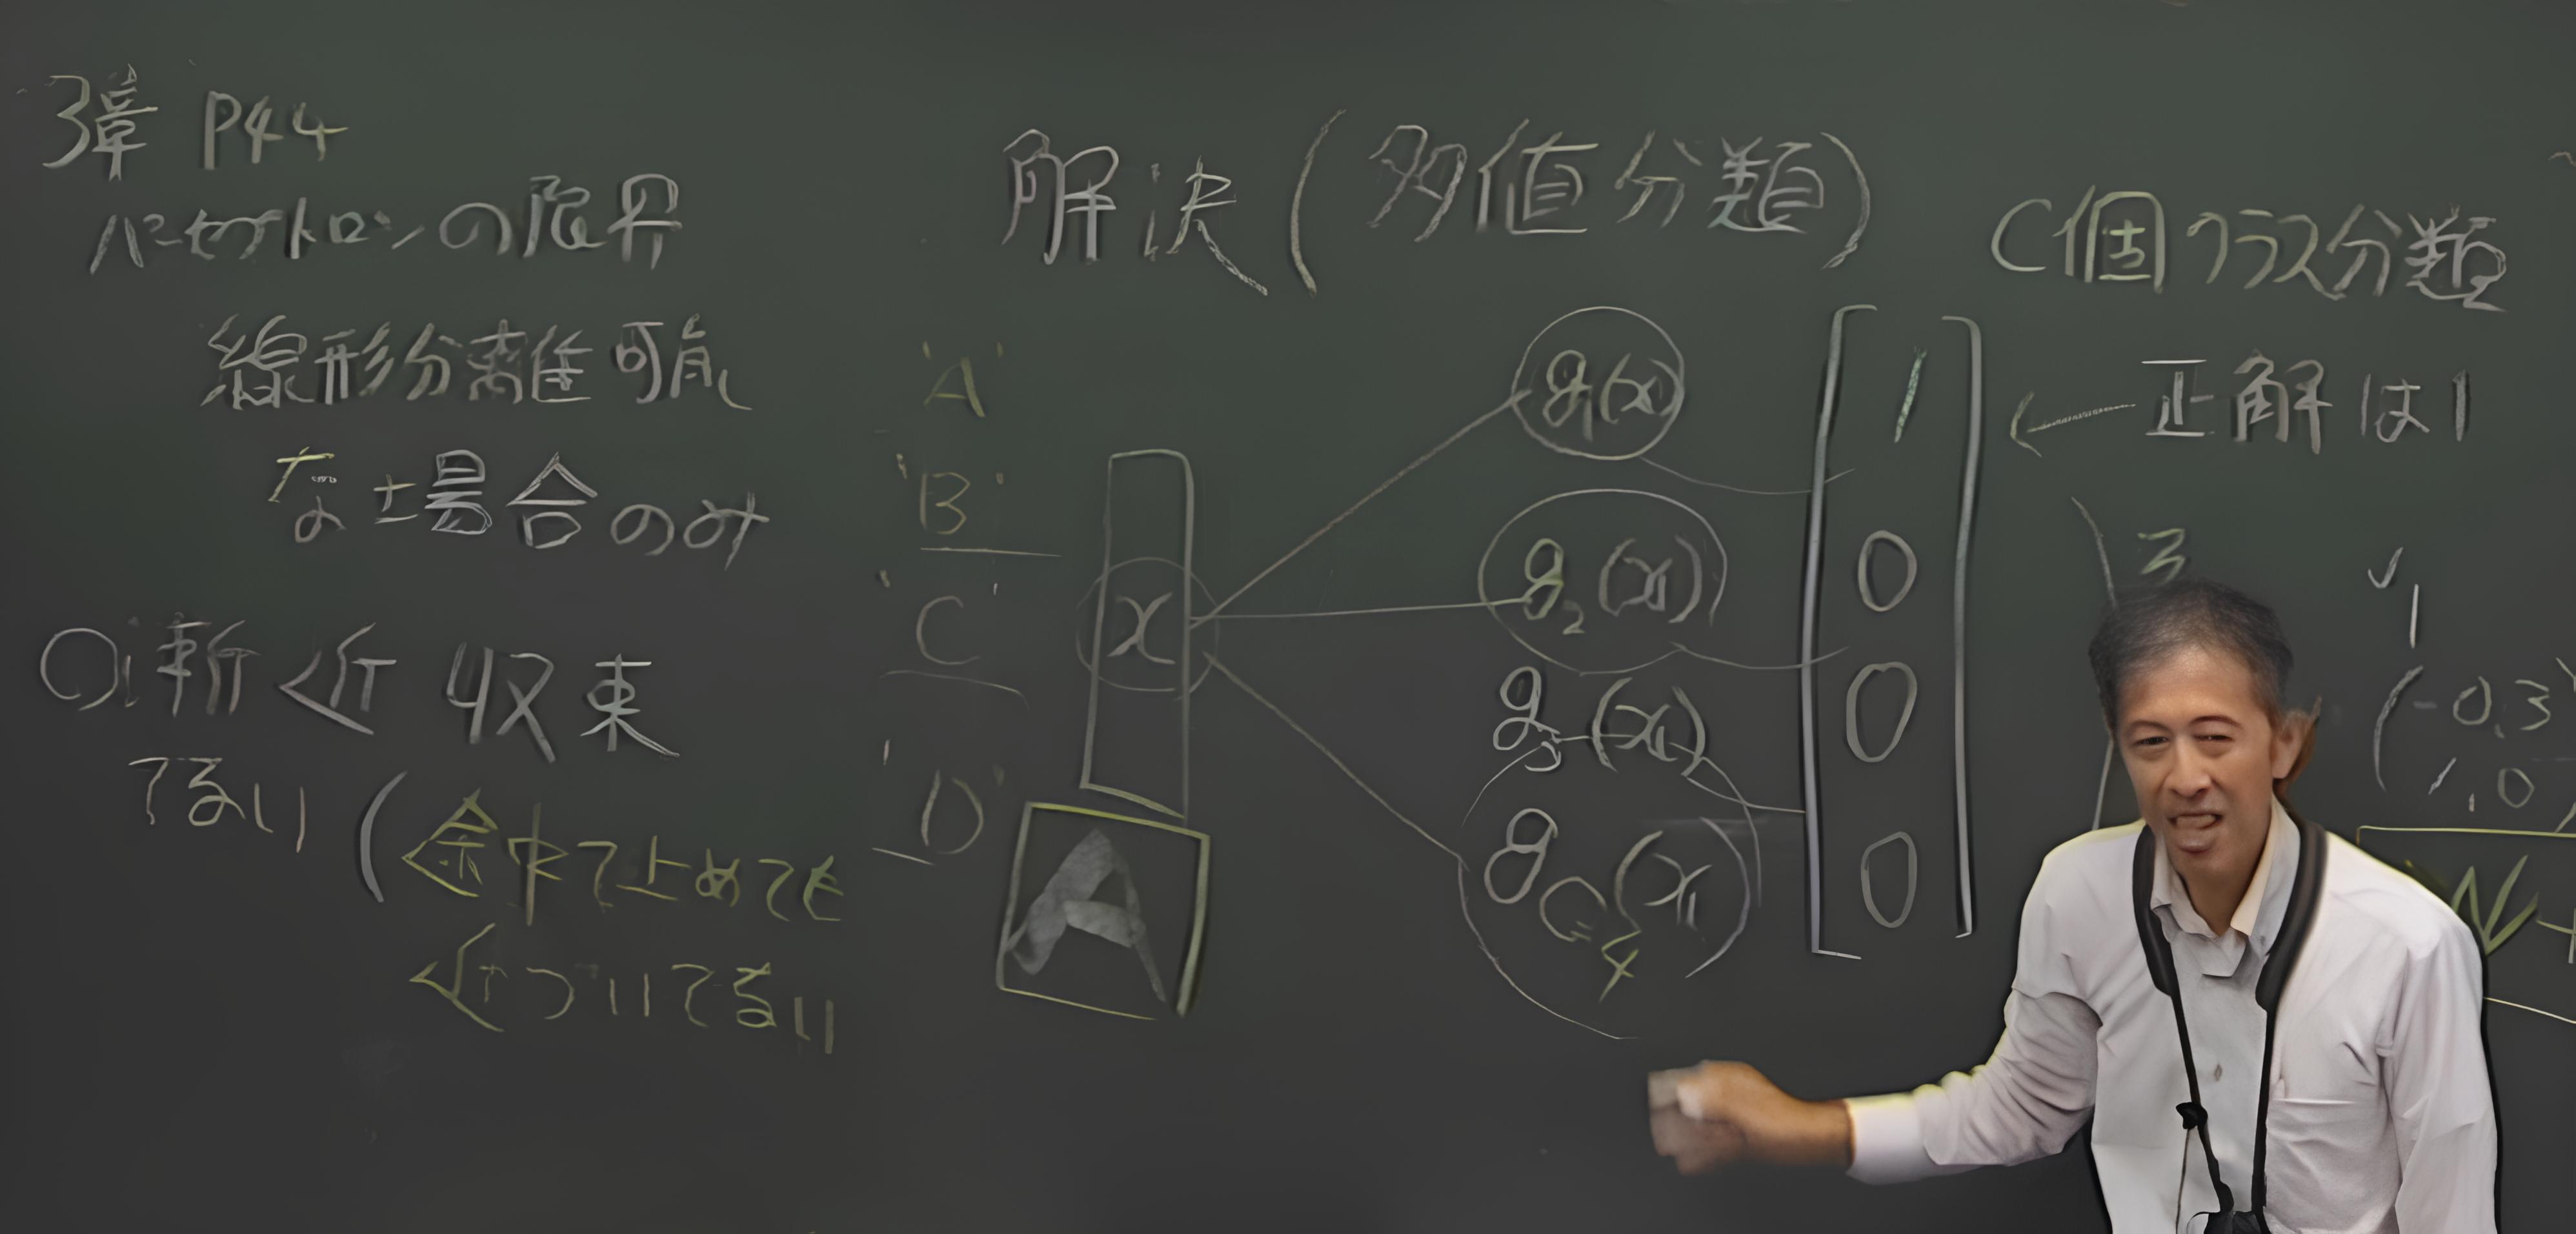 3章 P44
パーセプトロンの限界
線形分離可能
な場合のみ
漸近収束
でない
(途中で止めても
近づいてない
解決(多値分類)
'A'
'B'
'C'
'D'
x
A
g₁(x)
g₂(x)
g₃(x)
1
0
0
0
C個クラス分類
← 正解は1
(-0,3
1,0